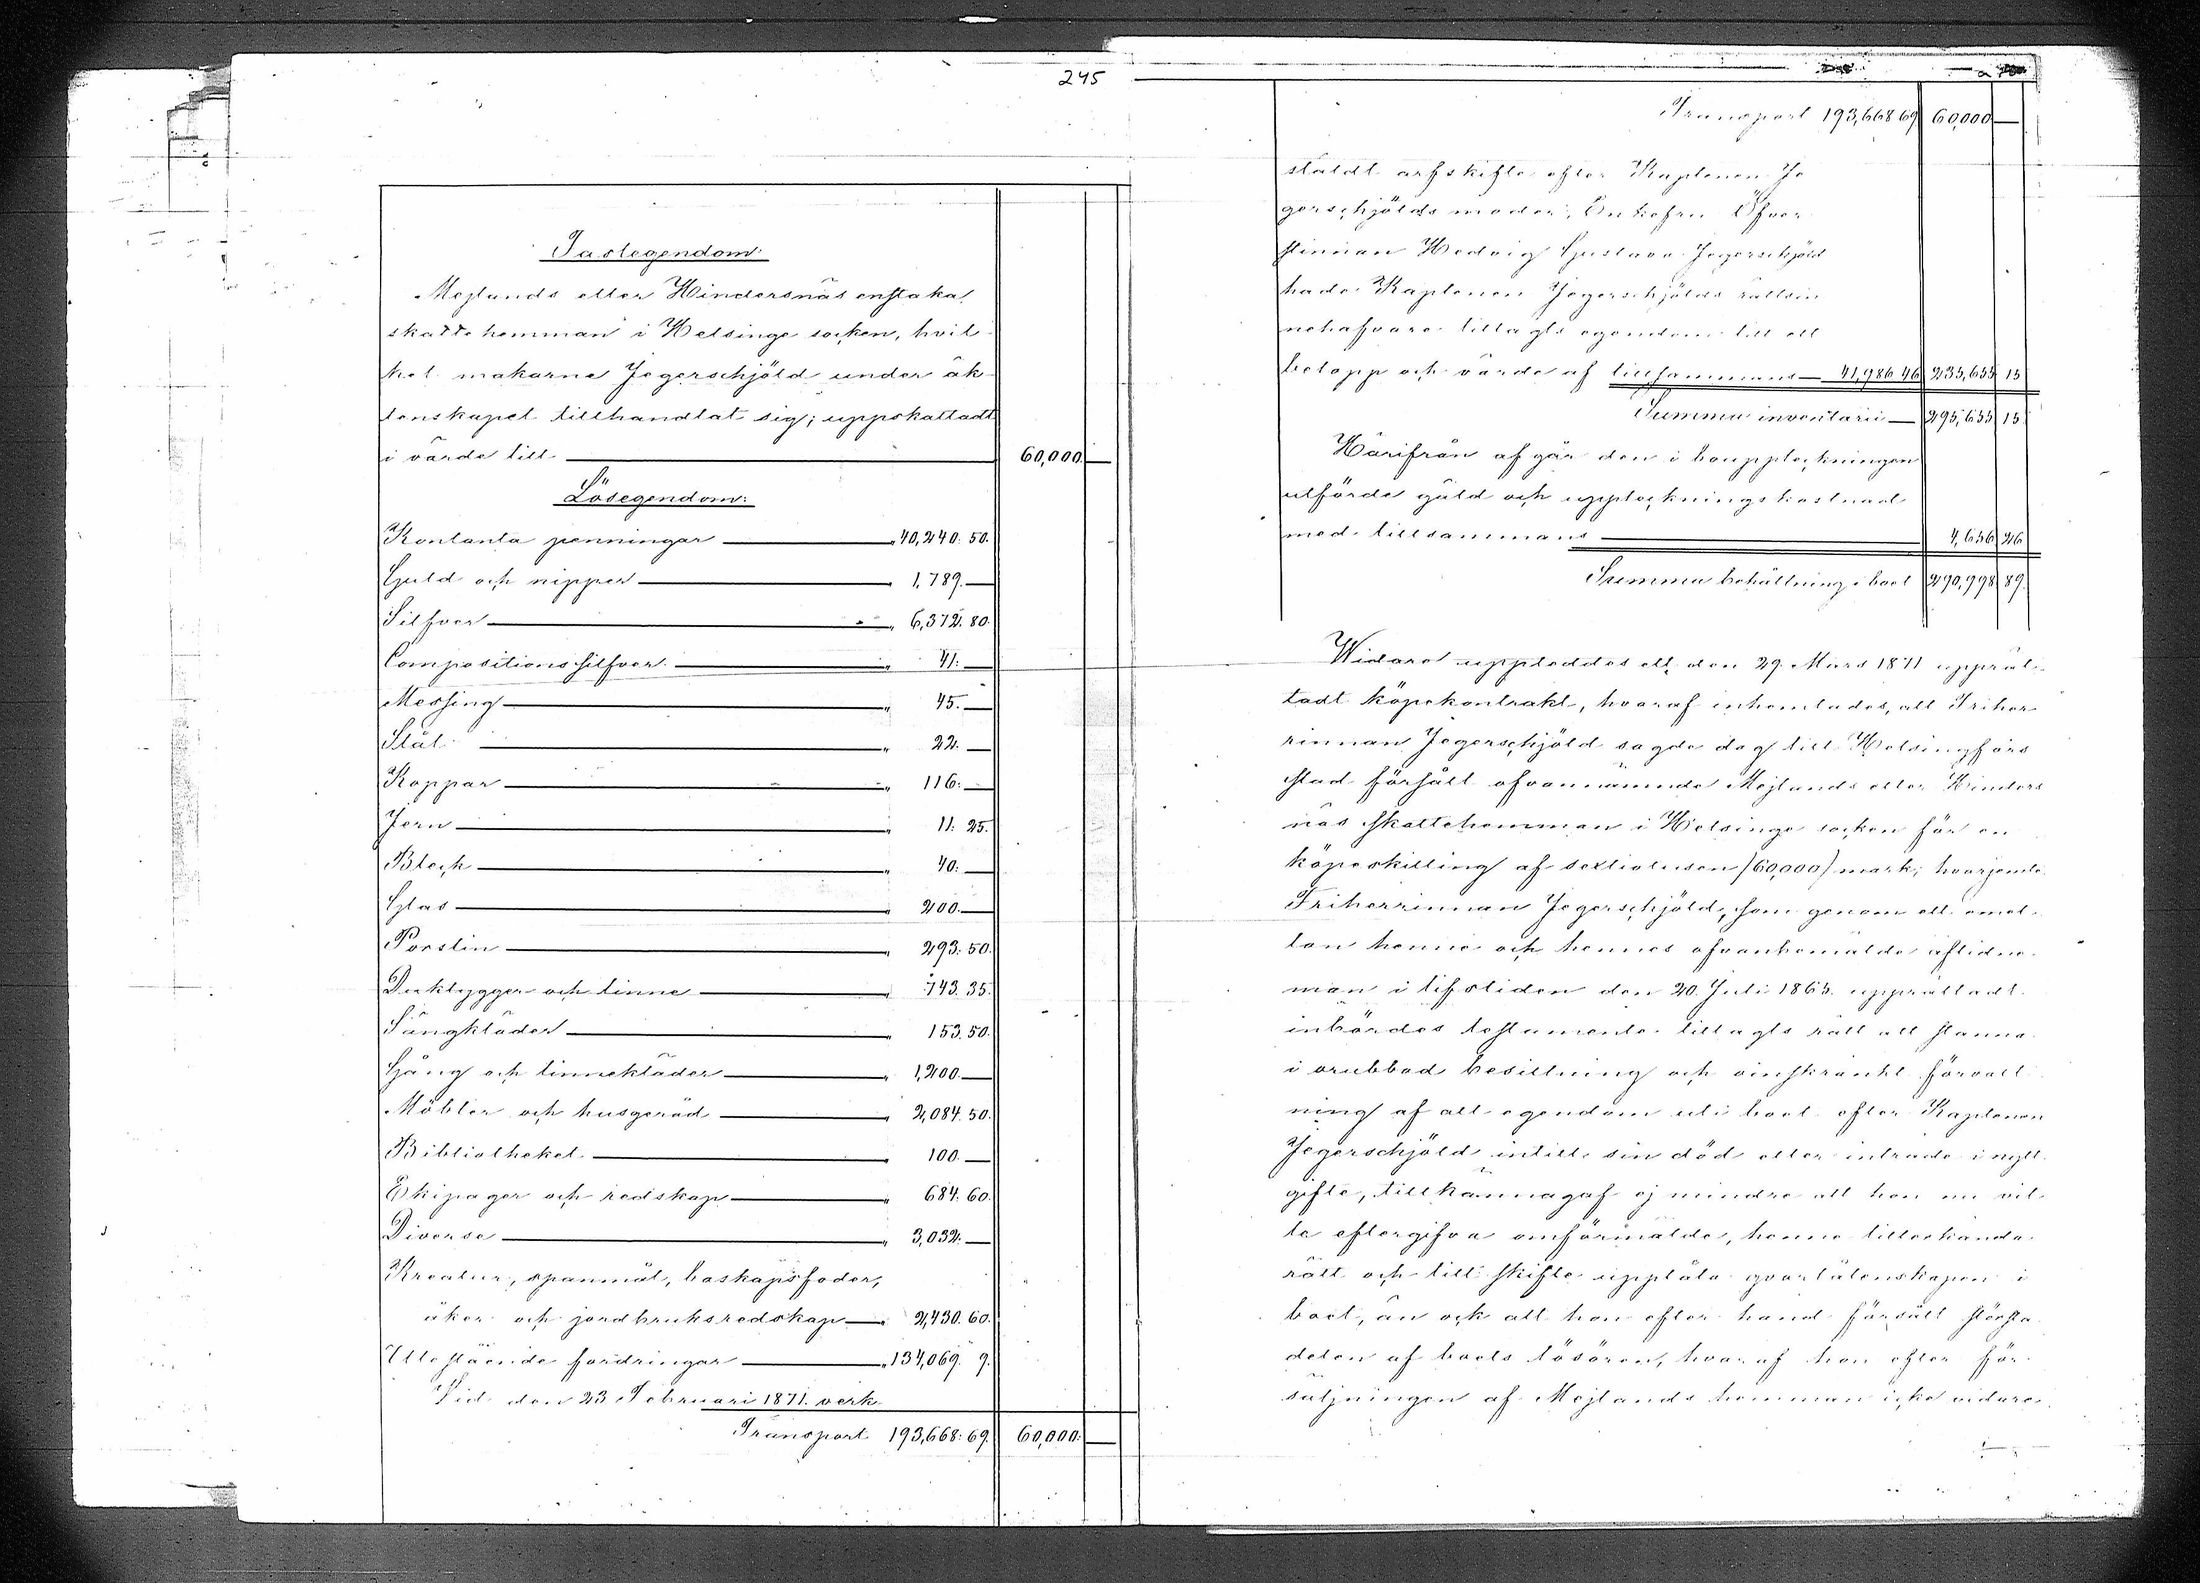 245
Fastegendom:
Mejlands eller Hindersnäs enstaka
skattehemman i Helsinge socken, hvil-
ket makarne Jegerschjöld under äk-
tenskapet tillhandlat sig; uppskattadt
i värde till — 60,000. —
Lösegendom:
Kontanta penningar — „ 40,240. 50.
Guld och nipper — „ 1,789. —
Silfver — „ 6,372. 80.
Compositions silfver — „ 41. —
Messing — „ 45. —
Stål — „ 22. —
Koppar — „ 116. —
Jern — „ 11. 25.
Bleck — „ 40. —
Glas — „ 200. —
Porslin — „ 293. 50.
Duktyger och linne — „ 743. 35.
Sängkläder — „ 153. 50.
Gång och linnekläder — „ 1,200. —
Möbler och husgeråd — „ 2,084. 50.
Bibliotheket — „ 100. —
Ekipager och redskap — „ 684. 60.
Diverse — „ 3,032. —
Kreatur, spanmål, boskapsfoder,
åker- och jordbruksredskap — „ 2,430. 60.
Utestående fordringar — „ 134,069. 9.
Vid den 23 Februari 1871 verk-
Transport 193,668. 69. 60,000. —
Transport 193,668 69 60,000 —
stäldt arfskifte efter Kaptenen Je-
gerschjölds moder, Enkefru Öfver-
stinnan Hedvig Gustava Jegerschjöld
hade Kaptenen Jegerschjölds rättsin-
nehafvare tillagts egendom till ett
belopp och värde af tillsammans — 41,986 46 235,655 15
Summa inventarii — 295,655 15.
Härifrån afgår den i bouppteckningen
utförde gäld och uppteckningskostnad
med tillsammans — 4,656 26
Summa behållning i boet 290,998 89.
Widare uppteddes ett den 29 Mars 1871 upprät-
tadt köpekontrakt, hvaraf inhemtades, att Friher-
rinnan Jegerschjöld sagde dag till Helsingfors
stad försålt ofvannämnde Mejlands eller Hinders-
näs skattehemman i Helsinge socken för en
köpeskilling af sextiotusen (60,000) mark; hvarjemte
Friherrinnan Jegerschjöld, som genom ett emel-
lan henne och hennes ofvanbemälde aflidne
man i lifstiden den 20 Juli 1865 upprättadt
inbördes testamente tillagts rätt att stanna
i orubbad besittning och oinskränkt förvalt-
ning af all egendom uti boet efter Kaptenen
Jegerschjöld intill sin död eller inträde i nytt
gifte, tillkännagaf ej mindre att hon nu vil-
le eftergifva omförmälde, henne tillerkända
rätt och till skifte upplåta qvarlåtenskapen i
boet, än ock att hon efter hand försålt största
delen af boets lösören, hvaraf hon efter för-
säljningen af Mejlands hemman icke vidare